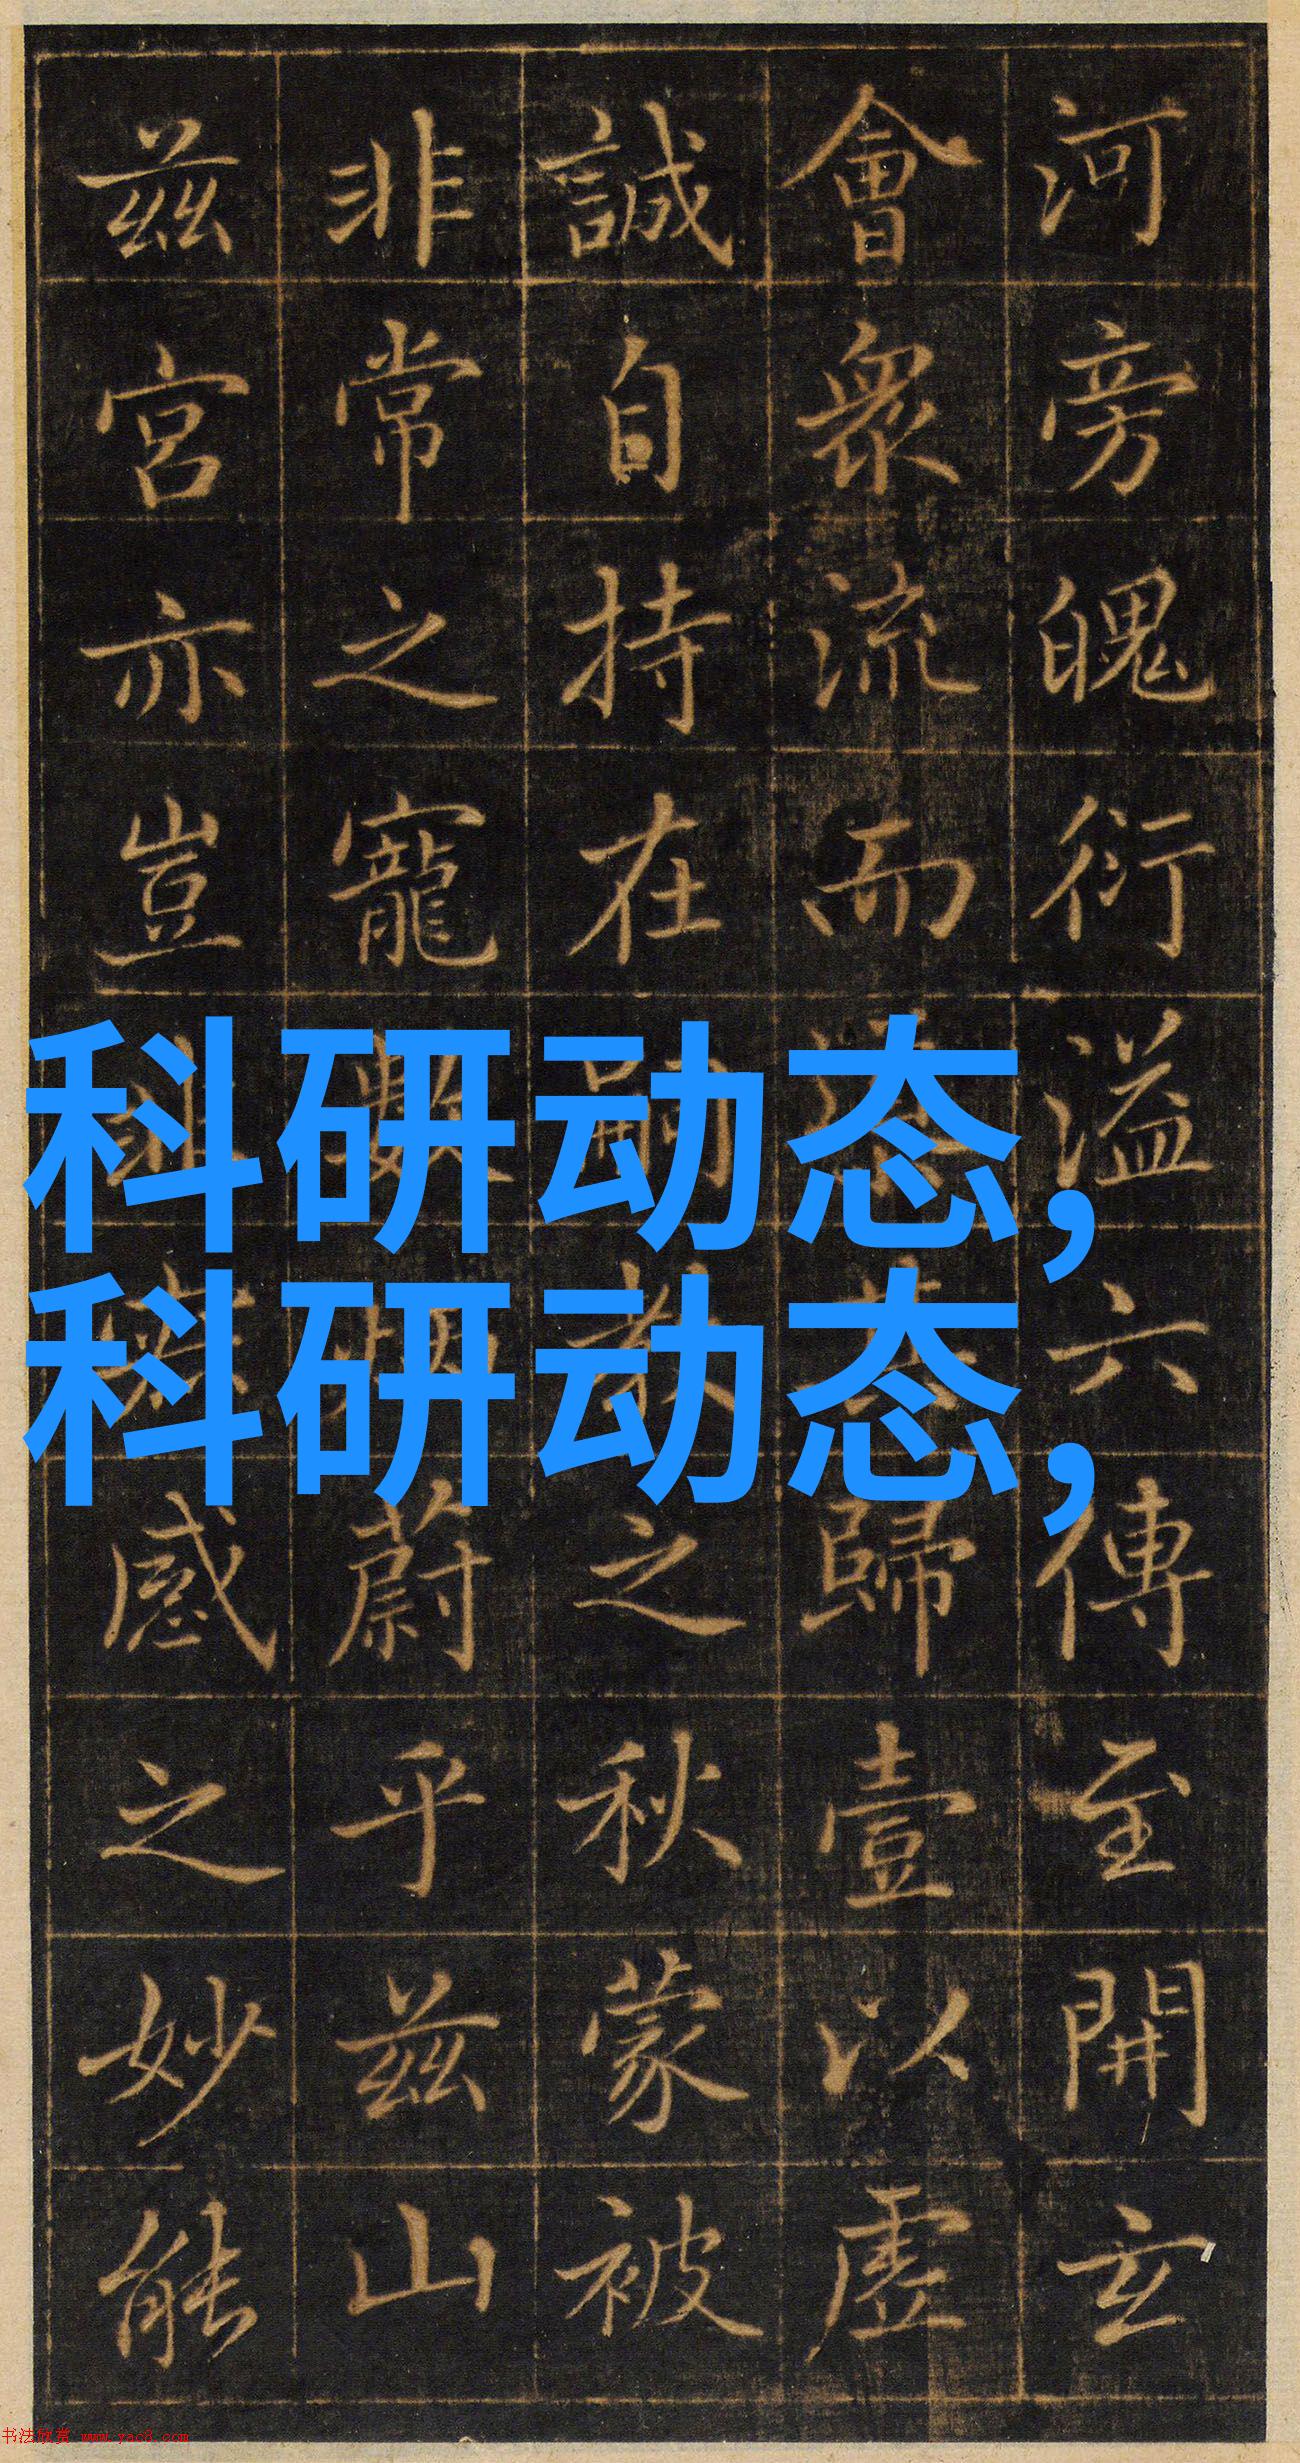 河旁魄衍溢六傳至開玄
會眾流而歸壹以虛
誠自持在之秋蒙被
非常之寵蔚乎茲山
茲宮亦豈感之妙能
科研动态,
科研动态,
书法欣赏 www.yac8.com